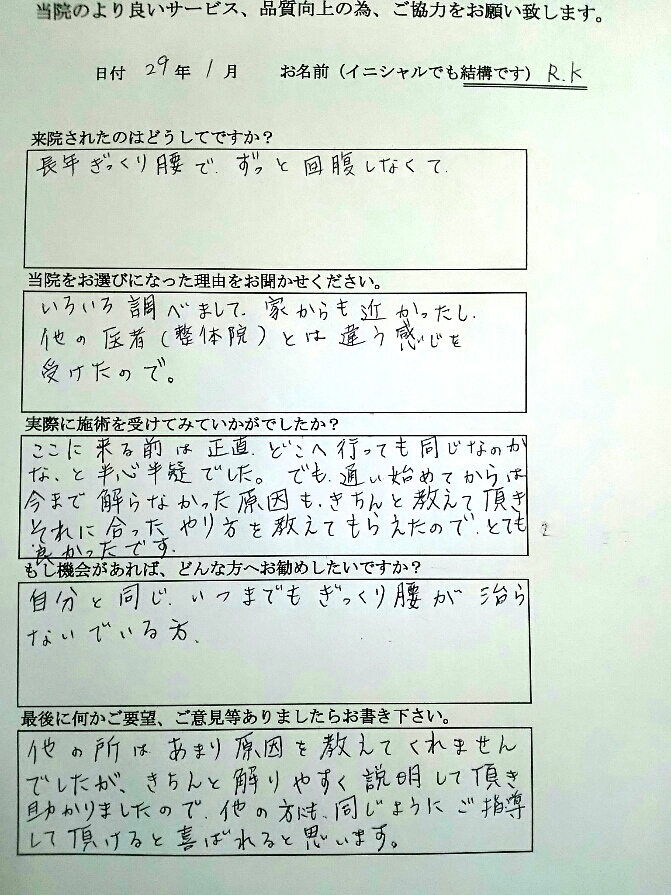 当院のより良いサービス、品質向上の為、ご協力をお願い致します。
日付 29年 1月 お名前（イニシャルでも結構です） R.K
来院されたのはどうしてですか？
長年ぎっくり腰で、ずっと回腹しなくて、
当院をお選びになった理由をお聞かせください。
いろいろ調べまして、家からも近かったし、
他の医者（整体院）とは違う感じを
受けたので。
実際に施術を受けてみていかがでしたか？
ここに来る前は正直、どこへ行っても同じなのか
な、と半心半疑でした。でも、通い始めてからは
今まで解らなかった原因も、きちんと教えて頂き
それに合ったやり方を教えてもらえたので、とても
良かったです。
もし機会があれば、どんな方へお勧めしたいですか？
自分と同じ、いつまでもぎっくり腰が治ら
ないでいる方、
最後に何かご要望、ご意見等ありましたらお書き下さい。
他の所はあまり原因を教えてくれません
でしたが、きちんと解りやすく説明して頂き
助かりましたので、他の方にも、同じようにご指導
して頂けると喜ばれると思います。